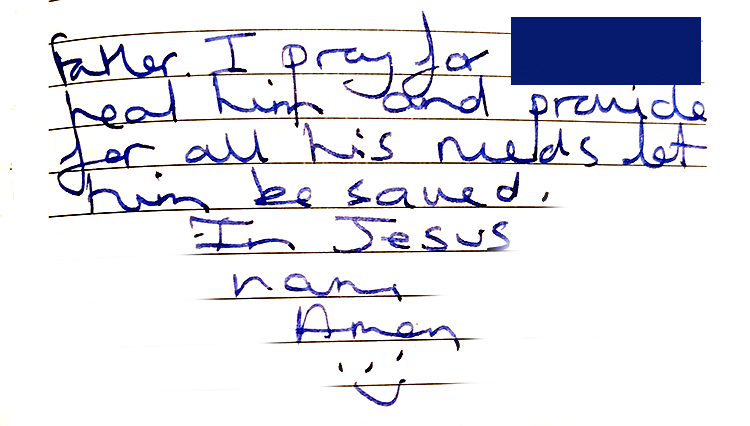 Father. I pray for
heal him and provide
for all his needs let
him be saved.
In Jesus
name
Amen